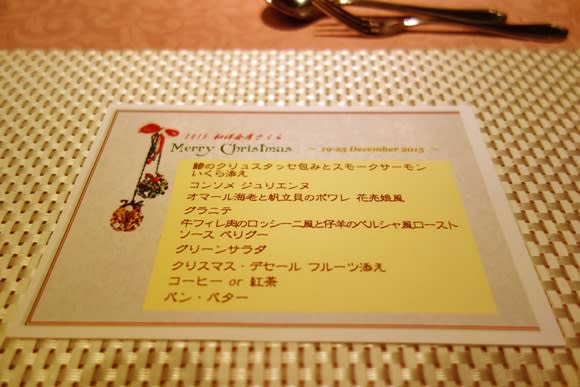 2015 和洋食屋さくら
Merry Christmas ~ 19-25 December 2015 ~
鯵のクリュスタッセ包みとスモークサーモン
いくら添え
コンソメ ジュリエンヌ
オマール海老と帆立貝のポワレ 花売娘風
グラニテ
牛フィレ肉のロッシーニ風と仔羊のペルシャ風ロースト
ソース ペリグー
グリーンサラダ
クリスマス・デセール フルーツ添え
コーヒー or 紅茶
パン・バター